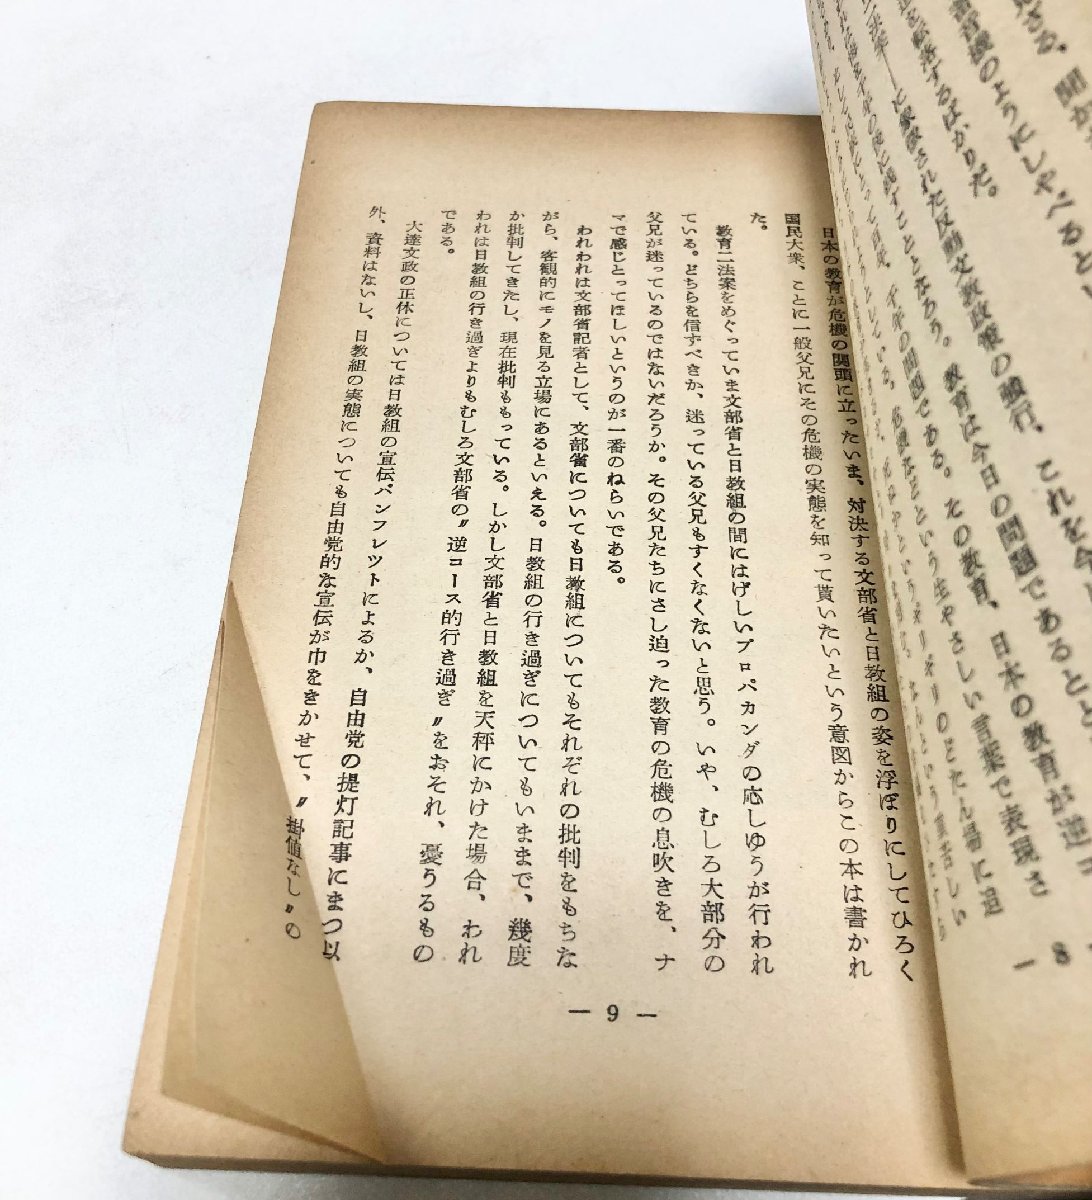 ざる。聞か
音機のようにしやべるとい
を転落するばかりだ。
された反動文教政策の強行、これを今
の問題である。教育は今日の問題であるとと
この教育、日本の教育が逆コ
という生やさしい言葉で表現さ
のどたん場に追
— 8
日本の教育が危機の関頭に立ったいま、対決する文部省と日教組の姿を浮ぼりにしてひろく
国民大衆、ことに一般父兄にその危機の実態を知って貰いたいという意図からこの本は書かれ
た。
教育二法案をめぐっていま文部省と日教組の間にはげしいプロパカンダの応しゆうが行われ
ている。どちらを信ずべきか、迷っている父兄もすくなくないと思う。いや、むしろ大部分の
父兄が迷っているのではないだろうか。その父兄たちにさし迫った教育の危機の息吹きを、ナ
マで感じとってほしいというのが一番のねらいである。
われわれは文部省記者として、文部省についても日教組についてもそれぞれの批判をもちな
がら、客観的にモノを見る立場にあるといえる。日教組の行き過ぎについてもいままで、幾度
か批判してきたし、現在批判ももっている。しかし文部省と日教組を天秤にかけた場合、われ
われは日教組の行き過ぎよりもむしろ文部省の〃逆コース的行き過ぎ〃をおそれ、憂うるもの
である。
大達文政の正体については日教組の宣伝パンフレツトによるか、自由党の提灯記事にまつ以
外、資料はないし、日教組の実態についても自由党的な宣伝が巾をきかせて、〃掛値なし〃の
— 9 —